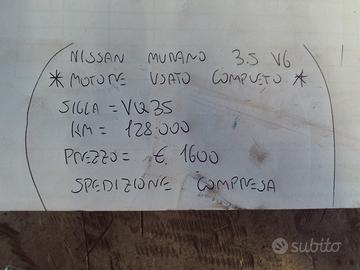 NISSAN MURANO 3.5 V6
* MOTORE USATO COMPLETO *
SIGLA = VQ35
KM = 128.000
PREZZO = € 1600
SPEDIZIONE COMPRESA
subito